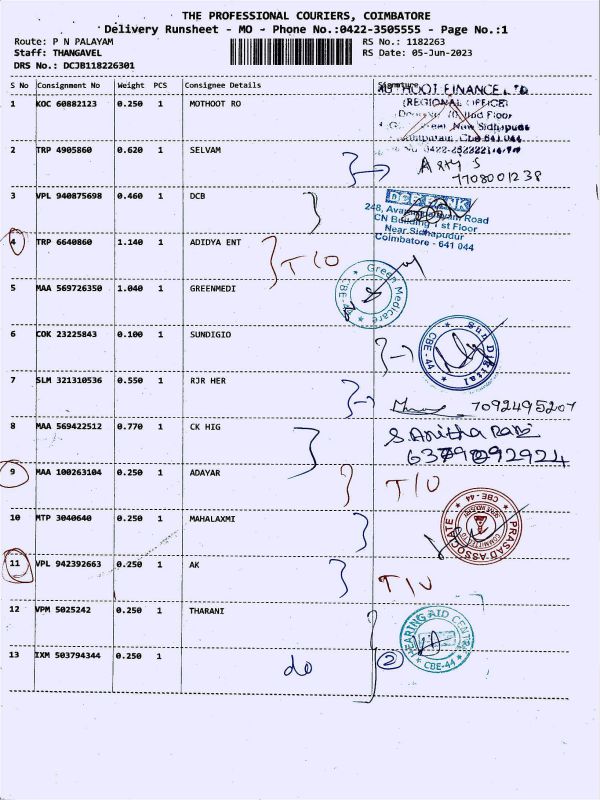 THE PROFESSIONAL COURIERS, COIMBATORE
Delivery Runsheet - MO - Phone No.:0422-3505555 - Page No.:1
Route: P N PALAYAM RS No.: 1182263
Staff: THANGAVEL RS Date: 05-Jun-2023
DRS No.: DCJB118226301
S No Consignment No Weight PCS Consignee Details Signature
1 KOC 60882123 0.250 1 MOTHOOT RO
HOOT FINANCE LTD
(REGIONAL OFFICE)
2nd Floor
New Sidhapudur
2 TRP 4905860 0.620 1 SELVAM
7708001238
3 VPL 940875698 0.460 1 DCB
DCB BANK
248, Road
CN Building 1st Floor
Near Sidhapudur
Coimbatore - 641 044
4 TRP 6640860 1.140 1 ADIDYA ENT T/O
5 MAA 569726350 1.040 1 GREENMEDI
Green Medicare
CBE-44
6 COK 23225843 0.100 1 SUNDIGIO
Sun Digital
CBE-44
7 SLM 321310536 0.550 1 RJR HER
7092495207
8 MAA 569422512 0.770 1 CK HIG
S. Anitha Rani
6379892924
9 MAA 100263104 0.250 1 ADAYAR T/O
10 MTP 3040640 0.250 1 MAHALAXMI
PRASAD ASSOCIATE
CBE-44
11 VPL 942392663 0.250 1 AK T/O
12 VPM 5025242 0.250 1 THARANI
HEARING AID CENTRE
CBE-44
13 IXM 503794344 0.250 1 do 2